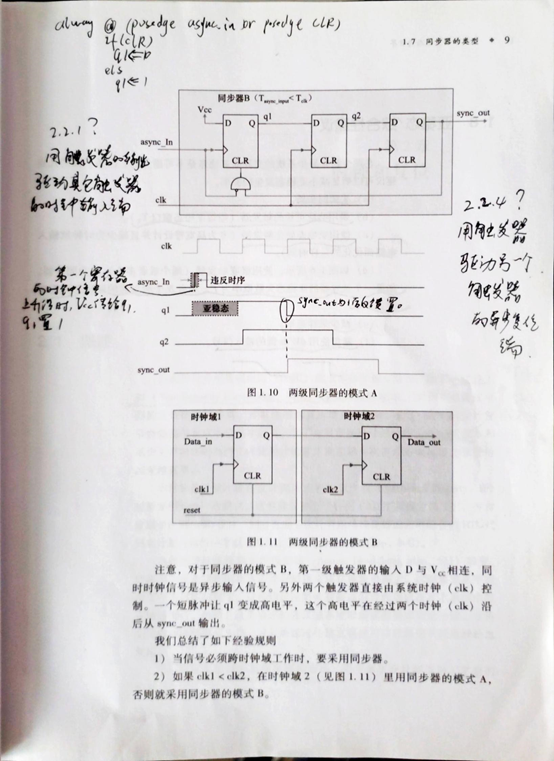 always @ (posedge async_in or posedge CLR)
if(CLR)
q1<=0
els
q1<=1
1.7 同步器的类型 9
同步器B（T_async_input<T_clk）
Vcc
D Q q1 D Q q2 D Q sync_out
async_In
CLR CLR CLR
clk
2.2.1?
用触发器的输出
驱动其它触发器
的时钟输入端
2.2.4?
用触发器
驱动另一个
触发器
的异步复位
端
clk
async_In 违反时序
第一个寄存器
的时钟信号
上升沿时，Vcc传给q1
q1置1
q1 亚稳态
sync_out为1后被置0。
q2
sync_out
图 1.10 两级同步器的模式 A
时钟域1 时钟域2
Data_in D Q D Q Data_out
CLR CLR
clk1 clk2
reset
图 1.11 两级同步器的模式 B
注意，对于同步器的模式 B，第一级触发器的输入 D 与 VCC 相连，同
时时钟信号是异步输入信号。另外两个触发器直接由系统时钟（clk）控
制。一个短脉冲让 q1 变成高电平，这个高电平在经过两个时钟（clk）沿
后从 sync_out 输出。
我们总结了如下经验规则
1）当信号必须跨时钟域工作时，要采用同步器。
2）如果 clk1 < clk2，在时钟域 2（见图 1.11）里用同步器的模式 A，
否则就采用同步器的模式 B。